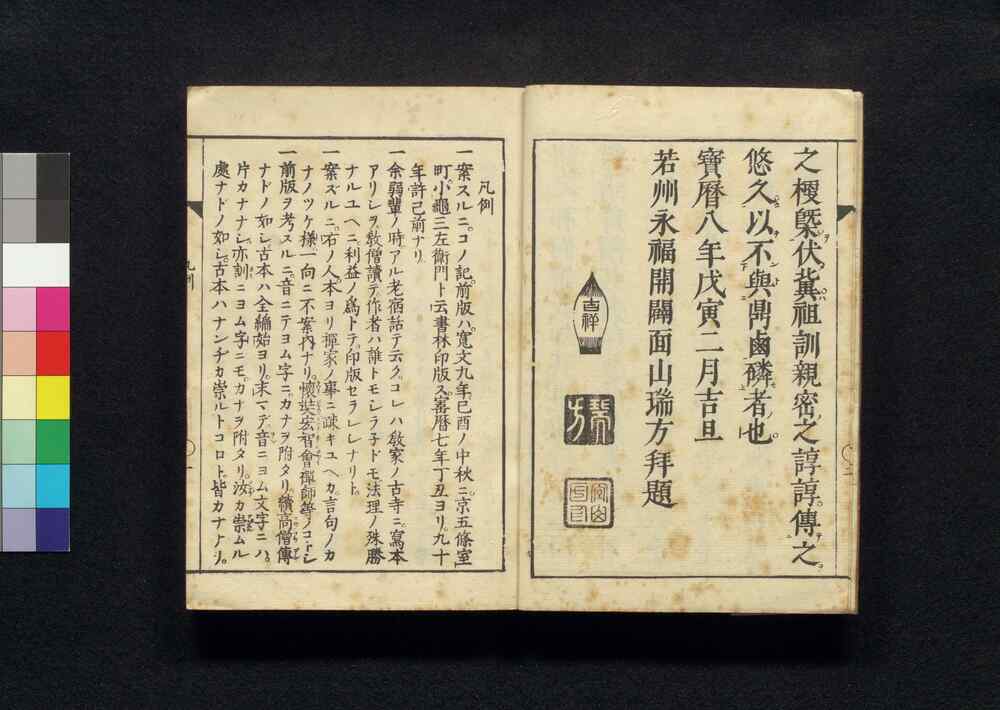 之稷槩伏冀祖訓親密之諄諄傳之
悠久以不與鼎鹵磷者也
寶曆八年戊寅二月吉旦
若州永福開闢面山瑞方拜題
吉祥
凡例
一案スルニコノ記前版ハ寛文九年己酉ノ中秋ニ京五條室
町小龜三左衞門ト云書林印版ス寶曆七年丁丑ヨリ九十
年許已前ナリ
一余弱輩ノ時アル老宿話テ云クコレハ敎家ノ古寺ニ寫本
アリシヲ敎僧讀テ作者ハ誰トモシラ子ドモ法理ノ殊勝
ナルユヘニ利益ノ爲トテ印版セラレシナリト
一案ズルニ右ノ人本ヨリ禪家ノ事ニ疎キユヘカ言句ノカ
ナノツケ樣一向ニ不案內ナリ懷奘宏智會禪師等ノコトシ
一前版ヲ考スルニ音ニテヨム字ニカナヲ附タリ續高僧傳
ナドノ如シ古本ハ全編始ヨリ末マデ音ニヨム文字ニハ
片カナナシ亦訓ニヨム字ニモカナヲ附タリ汝カ崇ムル
處ナドノ如シ古本ハナンヂカ崇ルトコロト皆カナナシ
凡例